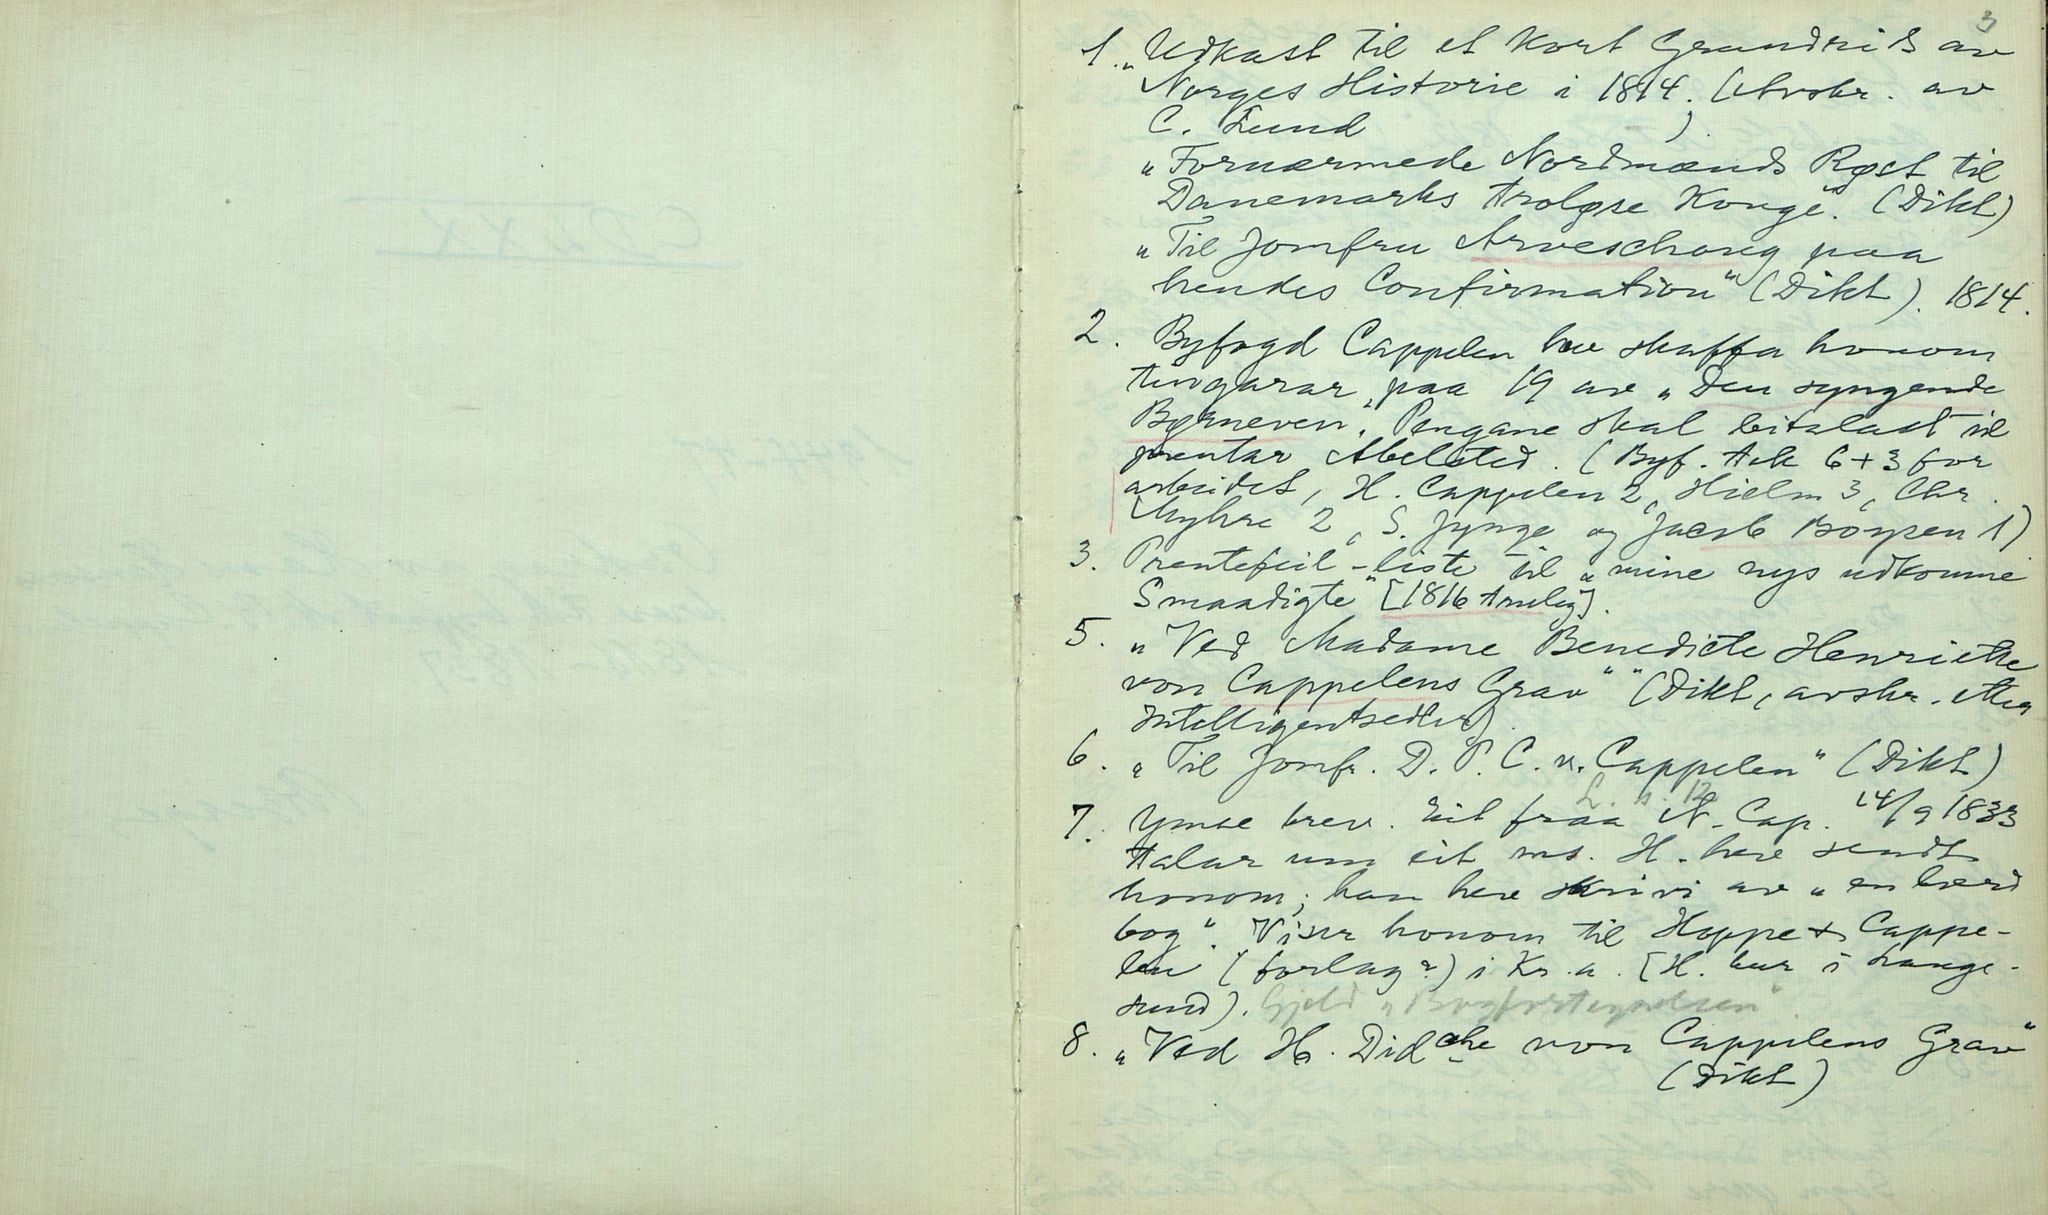 3
1. „Udkast til et kort Grundrids av
Norges Historie i 1814. (Avskr. av
C. Lund )
„Fornærmede Nordmænds Røst til
Danemarks troløse Konge". (Dikt)
„Til Jomfru Arveschoug paa
hendes Confirmation" (Dikt). 1814.
2. Byfogd Cappelen hev skaffa honom
tingarar paa 19 av „Den syngende
Børneven". Pengane skal bitalast til
prentar Abelsted. (Byf. tek 6+3 for
arbeidet, H. Cappelen 2, Hielm 3, Chr.
Myhre 2, S. Jynge og Jacob Boysen 1)
3. Prentefeil-liste til „mine nys udkomne
Smaadigte" [1816 truleg].
5. „Ved Madame Benedicte Henriette
von Cappelens Grav" (Dikt, avskr. etter
Intelligentsedler).
6. „Til Jomfr. D. P. C. v. Cappelen" (Dikt)
7. Ymse brev. Eit fraa N. Cap. 14/9 1833
talar um eit ms. H. heve sendt
honom; han heve skrivi av „en lærd
bog". Viser honom til Hoppe & Cappe-
len (forlag?) i Kr.a. [H. bur i Lange-
sund). Gjeld „Bogfortegnelsen".
8. „Ved H. Didche von Cappelens Grav"
(Dikt)